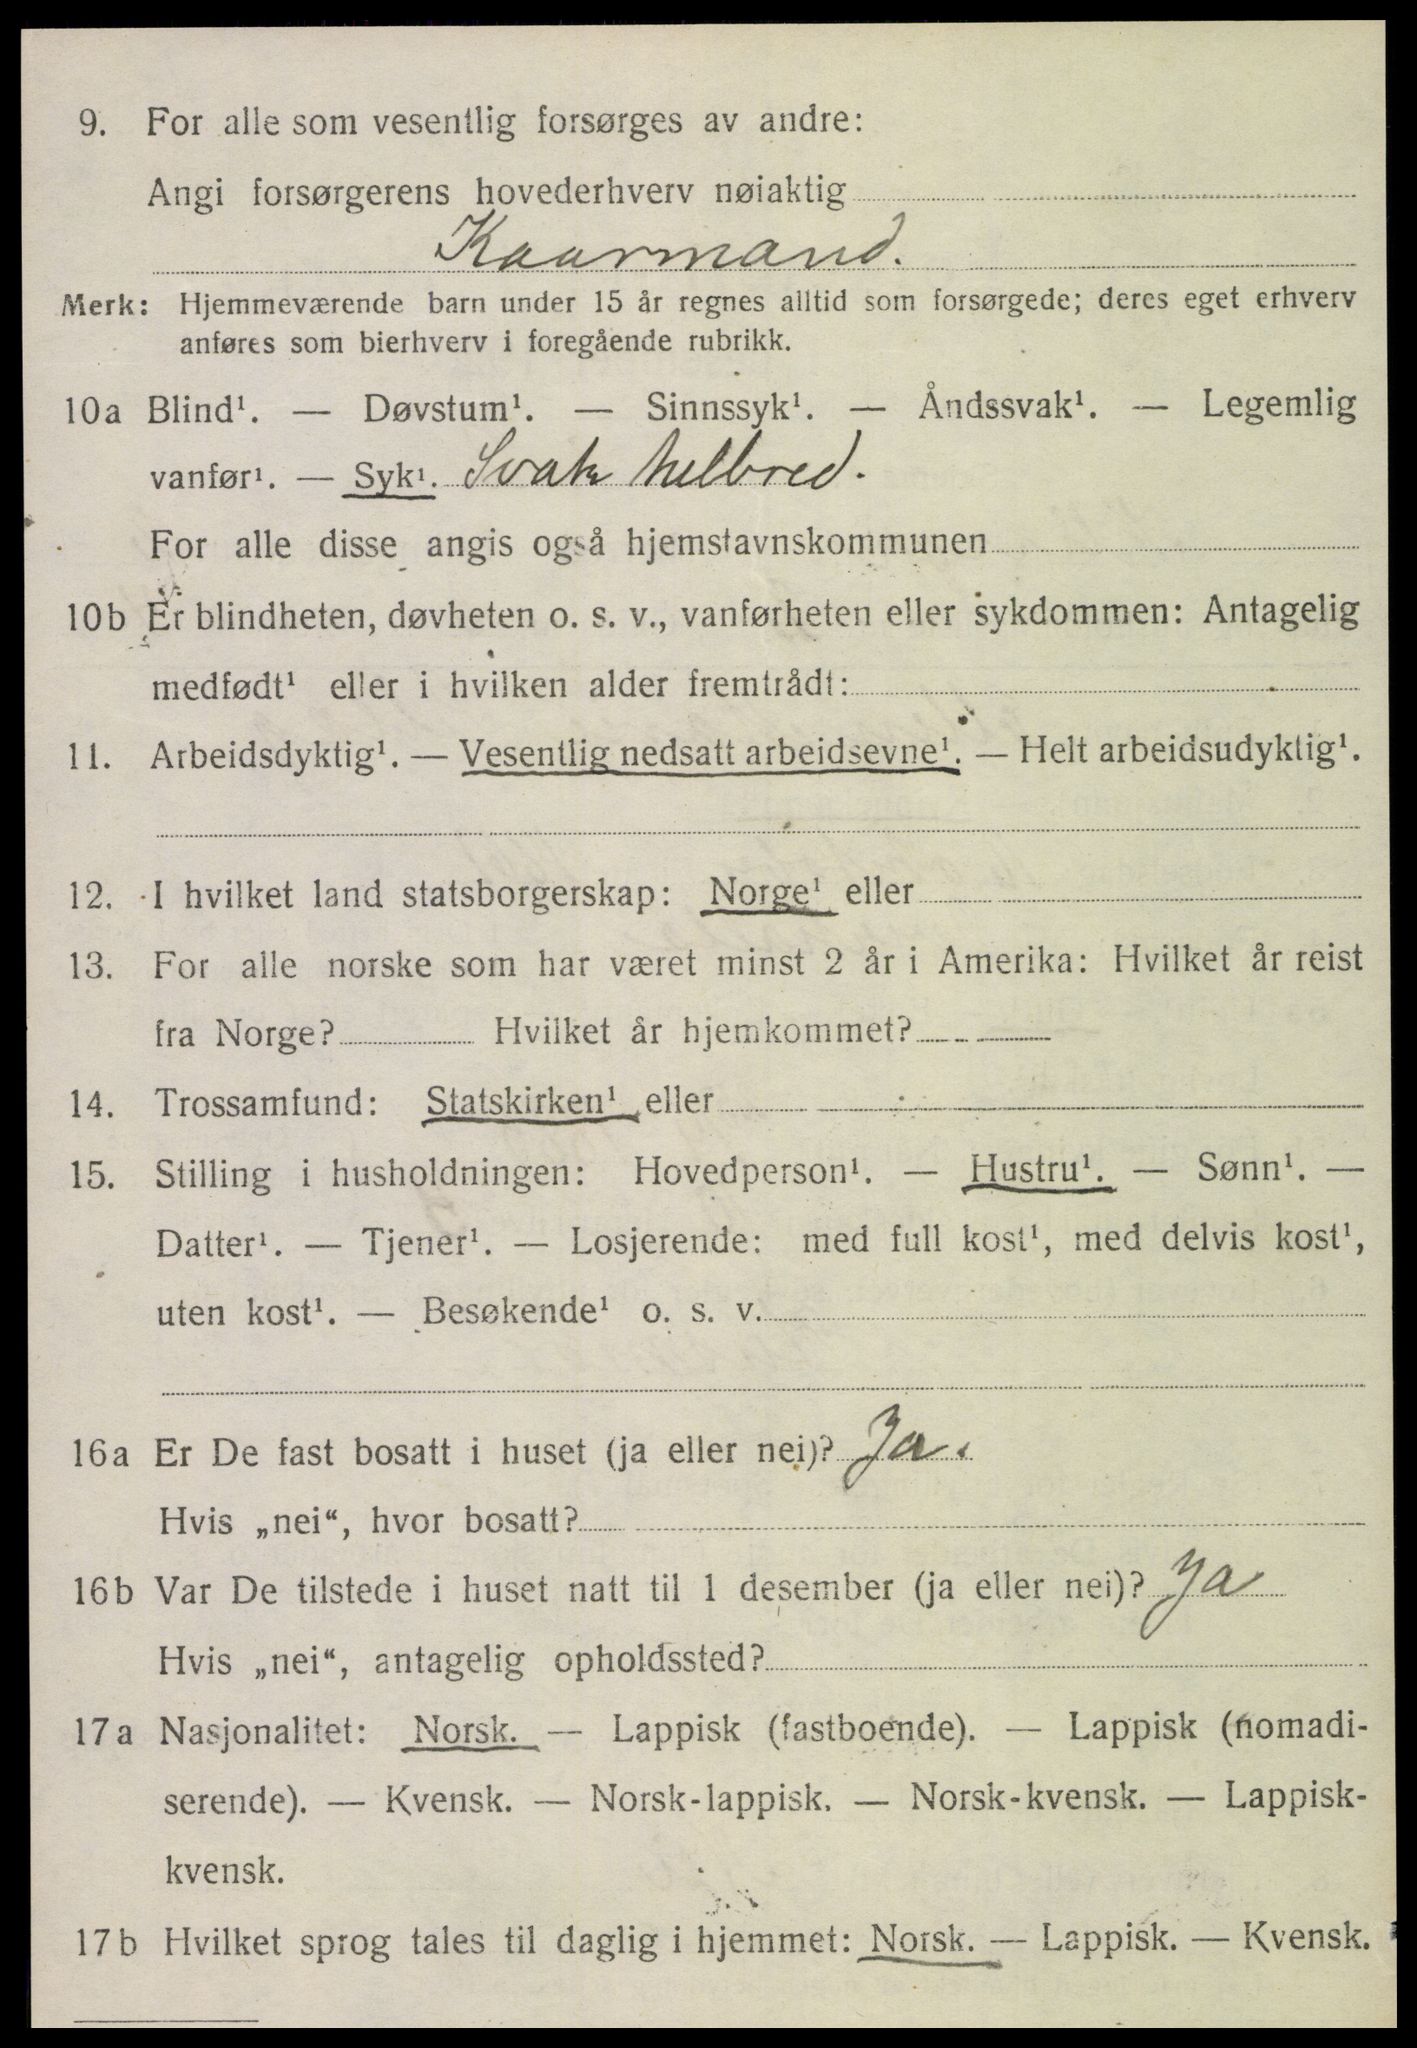 9. For alle som vesentlig forsørges av andre:
Angi forsørgerens hovederhverv nøiaktig
Kaarmand.
Merk: Hjemmeværende barn under 15 år regnes alltid som forsørgede; deres eget erhverv
anføres som bierhverv i foregående rubrikk.
10a Blind¹. — Døvstum¹. — Sinnssyk¹. — Åndssvak¹. — Legemlig
vanfør¹. — Syk¹. Svak helbred.
For alle disse angis også hjemstavnskommunen
10b Er blindheten, døvheten o. s. v., vanførheten eller sykdommen: Antagelig
medfødt¹ eller i hvilken alder fremtrådt:
11. Arbeidsdyktig¹. — Vesentlig nedsatt arbeidsevne¹. — Helt arbeidsudyktig¹.
12. I hvilket land statsborgerskap: Norge¹ eller
13. For alle norske som har været minst 2 år i Amerika: Hvilket år reist
fra Norge? Hvilket år hjemkommet?
14. Trossamfund: Statskirken¹ eller
15. Stilling i husholdningen: Hovedperson¹. — Hustru¹. — Sønn¹. —
Datter¹. — Tjener¹. — Losjerende: med full kost¹, med delvis kost¹,
uten kost¹. — Besøkende¹ o. s. v.
16a Er De fast bosatt i huset (ja eller nei)? Ja.
Hvis „nei“, hvor bosatt?
16b Var De tilstede i huset natt til 1 desember (ja eller nei)? Ja
Hvis „nei“, antagelig opholdssted?
17a Nasjonalitet: Norsk. — Lappisk (fastboende). — Lappisk (nomadi-
serende). — Kvensk. — Norsk-lappisk. — Norsk-kvensk. — Lappisk-
kvensk.
17b Hvilket sprog tales til daglig i hjemmet: Norsk. — Lappisk. — Kvensk.